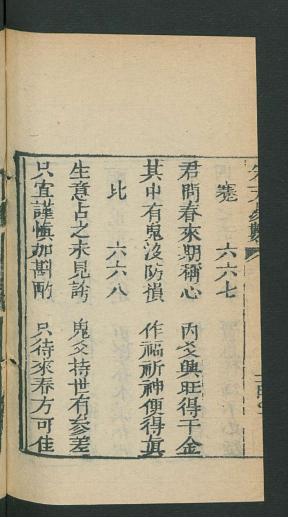 蹇 六六七
君問春來期稱心 內爻興旺得千金
其中有鬼沒防損 作福祈神便得真
比 六六八
生意占之未見諧 鬼爻持世有參差
只宜謹慎加斟酌 只待來春方可佳